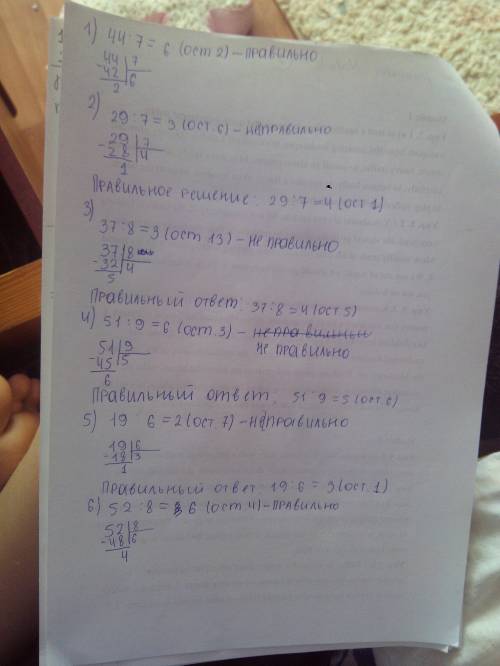 1) 44:7 = 6 (ост 2) – правильно
44 7
-42 6
2
2)
29:7 = 3 (ост. 6) – неправильно
29 7
-28 4
1
Правильное решение: 29:7 = 4 (ост 1)
3)
37:8 = 3 (ост 13) – не правильно
37 8
-32 4
5
Правильный ответ: 37:8 = 4 (ост 5)
4) 51:9 = 6 (ост. 3) – неправильный
не правильно
51 9
-45 5
6
Правильный ответ: 51:9 = 5 (ост. 6)
5) 19:6 = 2 (ост. 7) – неправильно
19 6
-18 3
1
Правильный ответ: 19:6 = 3 (ост. 1)
6) 52:8 = 6 (ост 4) – правильно
52 8
-48 6
4